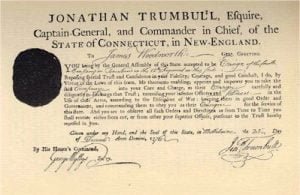 JONATHAN TRUMBULL, Esquire,
Captain-General, and Commander in Chief, of the
STATE of CONNECTICUT, in NEW-ENGLAND.
To James Woodworth Gent. GREETING.
YOU being by the General Assembly of this State accepted to be Ensign of the
Reposing special Trust and Confidence in your Fidelity, Courage, and good Conduct, I do, by
Virtue of the Laws of this State, Me thereunto enabling, appoint and impower you to take the
said into your Care and Charge, as their Ensign carefully and
diligently to discharge that Trust; exercising your inferior Officers and Soldiers in the
Use of their Arms, according to the Discipline of War; keeping them in good Order and
Government, and commanding them to obey you as their Ensign for the Service
of this State. And you are to observe all such Orders and Directions as from Time to Time you
shall receive either from me, or from other your superior Officer, pursuant to the Trust hereby
reposed in you.
Given under my Hand, and the Seal of this State, in
of Anno Domini, 17
By His Honor's Command,
George Wyllys Secy
Jonth Trumbull